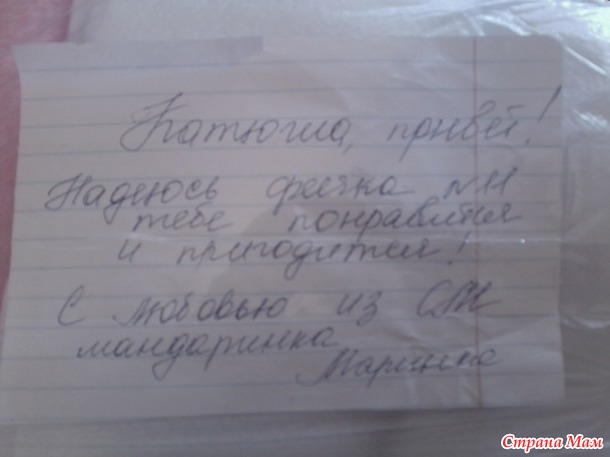 Катюша, привет!
Надеюсь феечка №11
тебе понравится
и пригодится!
С любовью из СМ
мандаринка
Маринка
Страна Мам